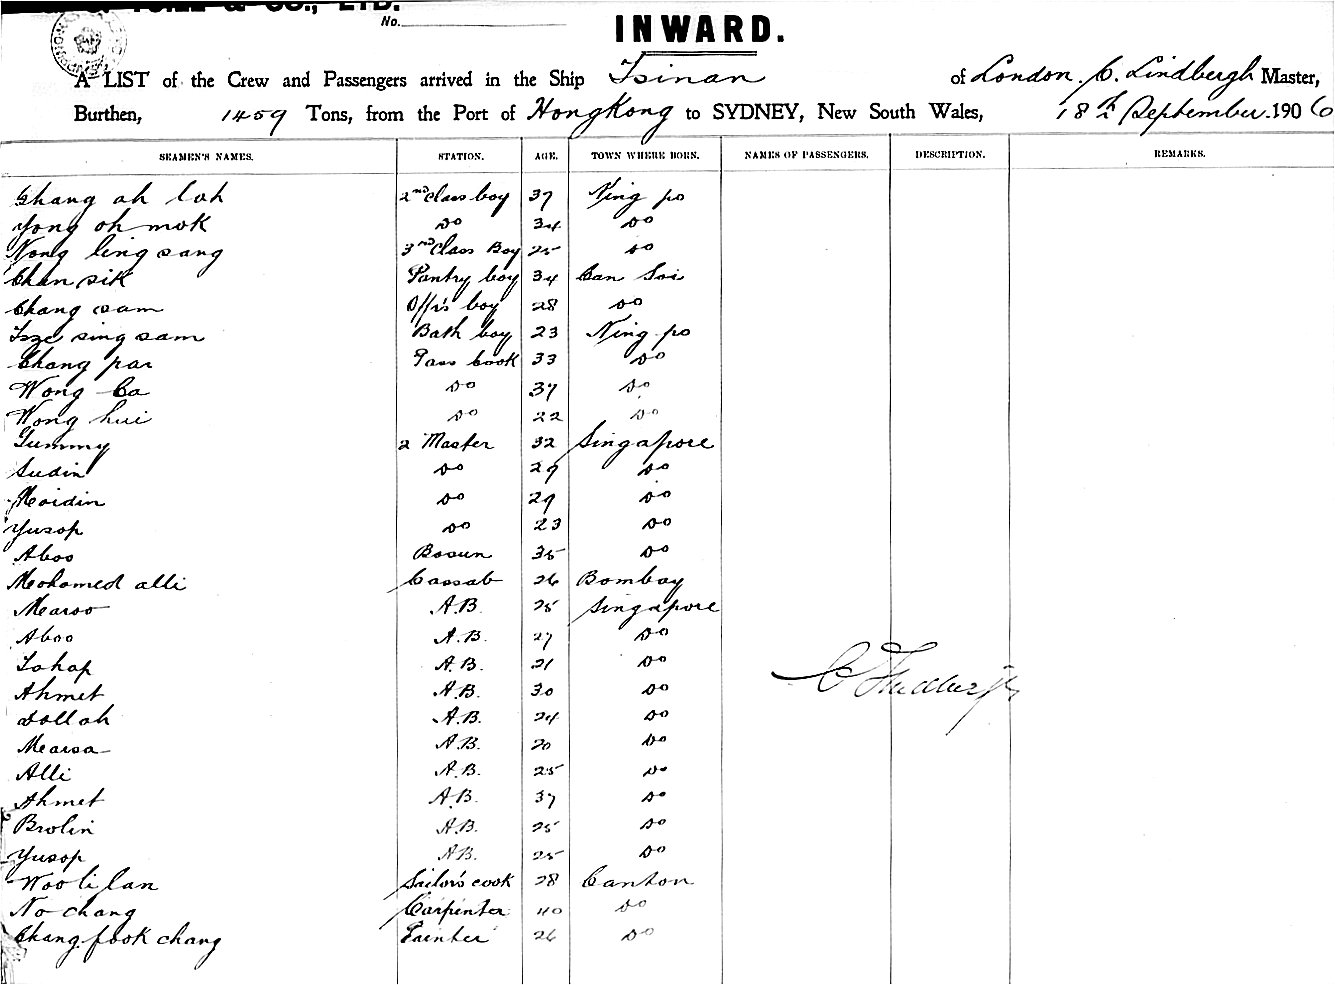 & CO., LTD.
No.
INWARD.
A LIST of the Crew and Passengers arrived in the Ship Tsinan of London. C. Lindbergh Master,
Burthen, 1459 Tons, from the Port of HongKong to SYDNEY, New South Wales, 18th September 1906
SEAMEN'S NAMES. STATION. AGE. TOWN WHERE BORN. NAMES OF PASSENGERS. DESCRIPTION. REMARKS.
Chang ah loh 2nd class boy 37 Ning po
Yong oh mok Do 34 Do
Nong ling sang 3rd Class Boy 25 Do
Chan sik Pantry boy 34 Can Soi
Chang sam Offrs boy 28 Do
Tsze sing sam Bath boy 23 Ning po
Chang par Pass Cook 33 Do
Wong Ca Do 37 Do
Wong hui Do 22 Do
Tummy 2 Master 32 Singapore
Sudin Do 29 Do
Moidin Do 29 Do
Yusop Do 23 Do
Aboo Bosun 35 Do
Mohamed alli Cassab 26 Bombay
Maroo A.B. 25 Singapore
Aboo A.B. 27 Do
Tahap A.B. 21 Do
Ahmet A.B. 30 Do
Dollah A.B. 24 Do
Marsa A.B. 20 Do
Alli A.B. 25 Do
Ahmet A.B. 37 Do
Brolin A.B. 25 Do
Yusop A.B. 25 Do
Woo li lan Sailor's cook 28 Canton
No chang Carpenter 40 Do
Chang fook chang Painter 26 Do
C Lindbergh